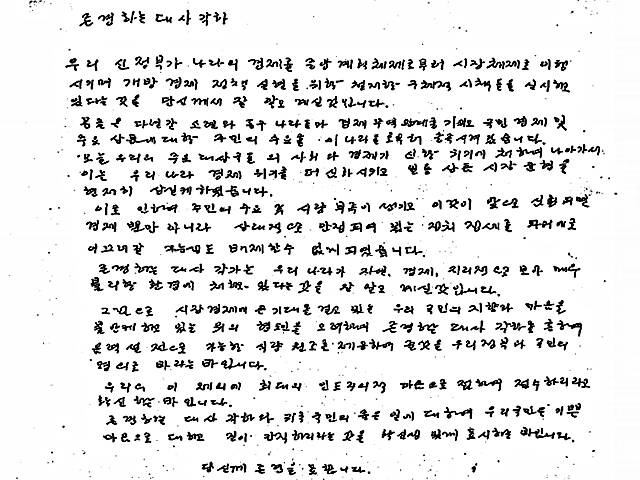 존경하는 대사 각하
우리 신정부가 나라의 경제를 중앙 계획체제로부터 시장체제로 이행
시키며 개방 경제 정책 실현을 위한 구체적 시책들을 실시하고
있다는 것을 당신께서 잘 알고 계실것입니다.
몽골은 다년간 소련과 동구 나라들과 경제 무역 관계를 국민 경제 및
주요 상품에 대한 주민의 수요를 이 나라들로부터 충족시켜 왔습니다.
오늘 우리의 주요 대상국들의 사회와 경제가 처하여 나아가서
이는 우리 나라 경제 위기를 더 시키고 상품 시장 균형을
현저히 하였습니다.
이로 인하여 주민의 수요 및 식량 부족이 생기고 이것이 앞으로 되면
경제 뿐만 아니라 상대적으로 안정되여 있는 정치 정세를
이끄러갈 가능성도 배제할수 없게 되었습니다.
존경하는 대사 각하는 우리 나라가 자연, 경제, 지리적으로 모두 매우
불리한 환경에 처하고 있다는것을 잘 알고 계실것입니다.
그러므로 시장경제에 큰 기대를 걸고 있는 우리 국민의 지향과 마음을
있는 위의 고려하여 존경하는 대사 각하를 통하여
우선적으로 가능한 식량 원조를 제공하여 줄것을 우리 정부와 국민의
명의로 바라는바입니다.
우리의 이 제의에 최대의 인도주의적 마음으로 접수하리라고
확신하는 바입니다.
존경하는 대사 각하와 귀국 국민의 좋은 일에 대하여 우리 국민은 기쁜
마음으로 대하고 깊이 간직하리라는 것을 표시하는 바입니다.
당신께 존경을 표합니다.